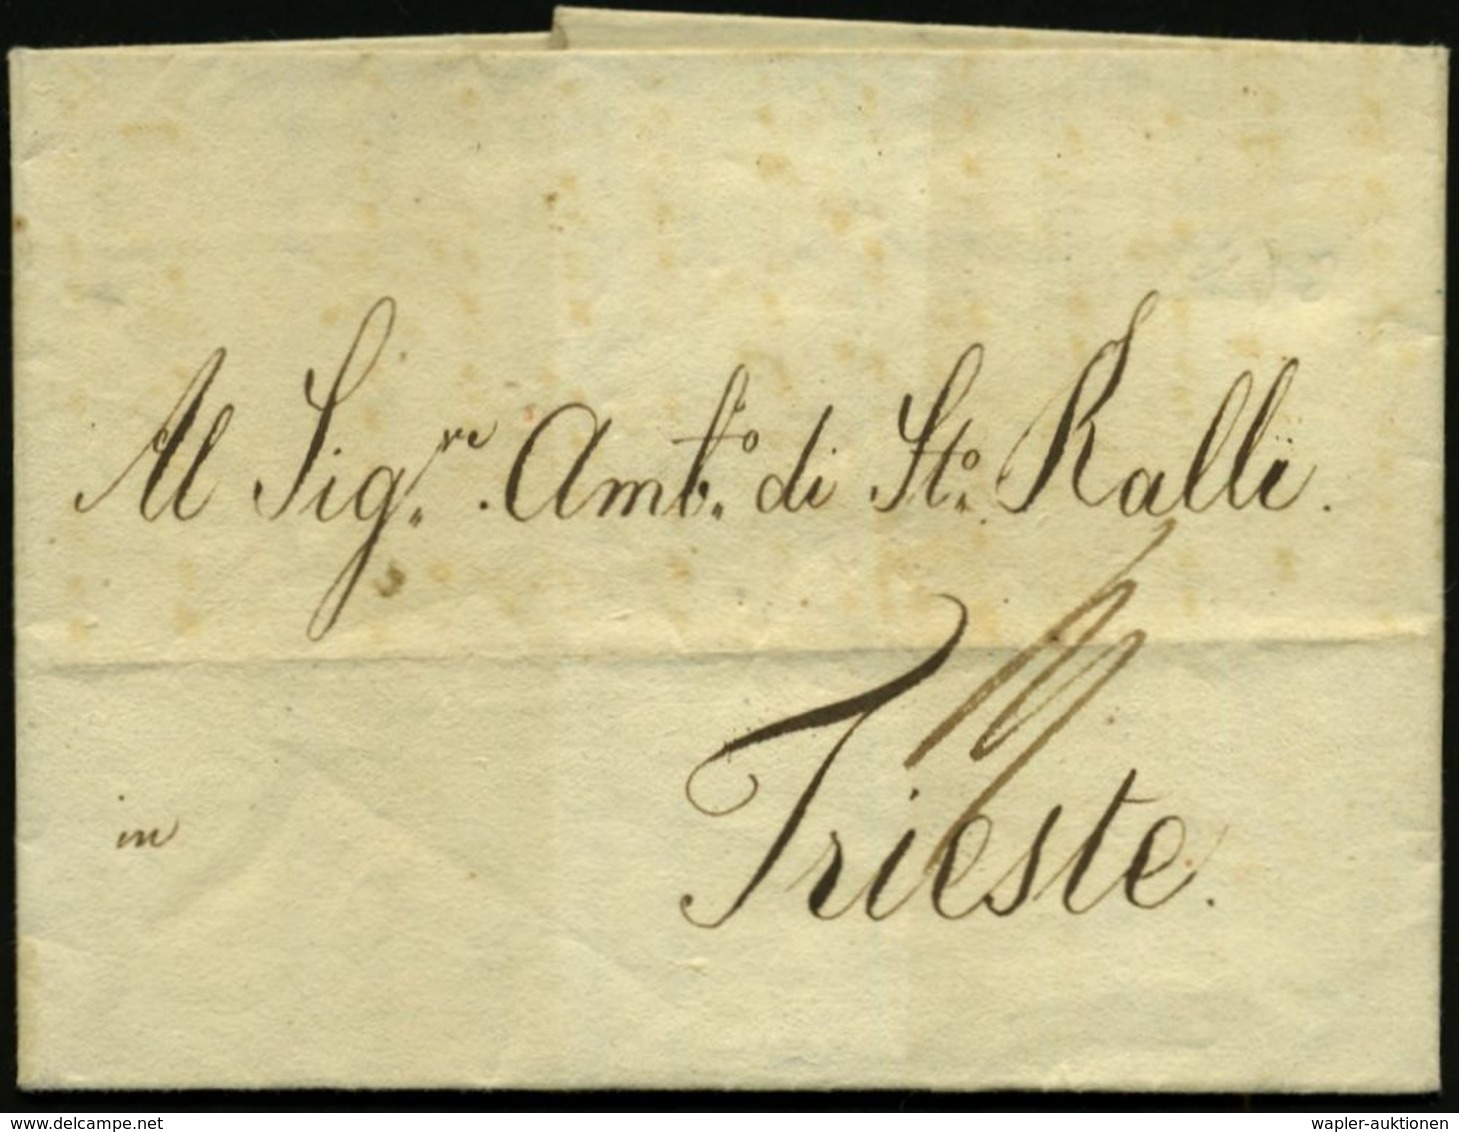 Al Sig.re Amb.o di St.o Ralli.
in Trieste.
www.delcampe.net
wapler-auktionen